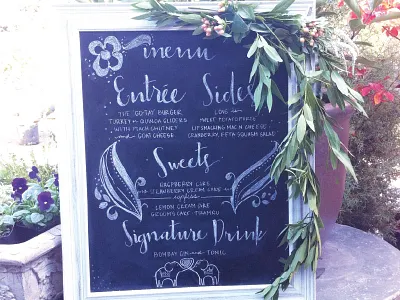 menu
Entrée Sides
THE "GO-TAY" BURGER
TURKEY QUINOA SLIDERS
WITH PEACH CHUTNEY
and GOAT CHEESE
SWEET POTATO
LIPSMACKING MAC N CHEESE
CRANBERRY, FETA QUINOA SALAD
Sweets
RASPBERRY
STRAWBERRY CREAM CAKE
LEMON CREAM CAKE
GROOM'S CAKE - TIRAMISU
Signature Drink
BOMBAY GIN and TONIC